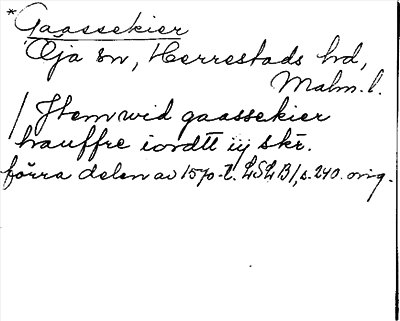 *Gaassekier
Öja sn, Herrestads hd,
Malm. l.
/ Jtem wid gaassekier
hauffre iordtt iij skr.
förra delen av 1570-t. LSLB 1, s. 240. orig.